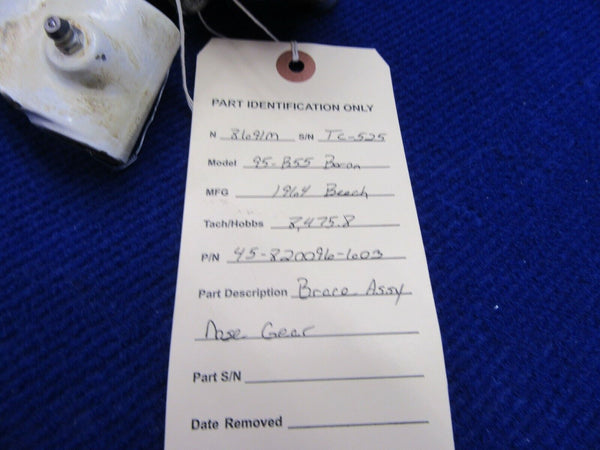 PART IDENTIFICATION ONLY
N 8691M S/N TC-525
Model 95-B55 Baron
MFG 1964 Beech
Tach/Hobbs 8,475.8
P/N 45-820096-603
Part Description Brace Assy
Nose Gear
Part S/N
Date Removed